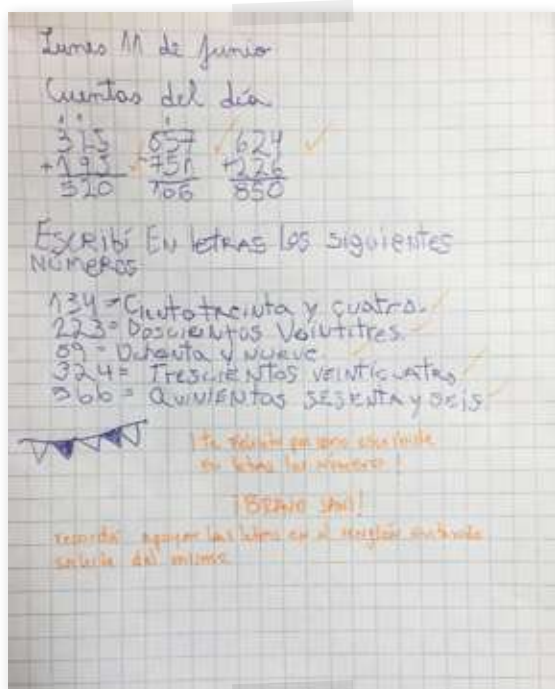 Lunes 11 de Junio
Cuentas del día
325 857 624
+195 -751 +226
520 106 850
Escribí En letras los siguientes
Números
134 = Ciento treinta y cuatro.
223 = Doscientos Veintitres.
89 = Ochenta y nueve.
324 = Trescientos veinticuatro
566 = Quinientos sesenta y seis
en letras los números!
¡BRAVO
recordá las letras en el renglón